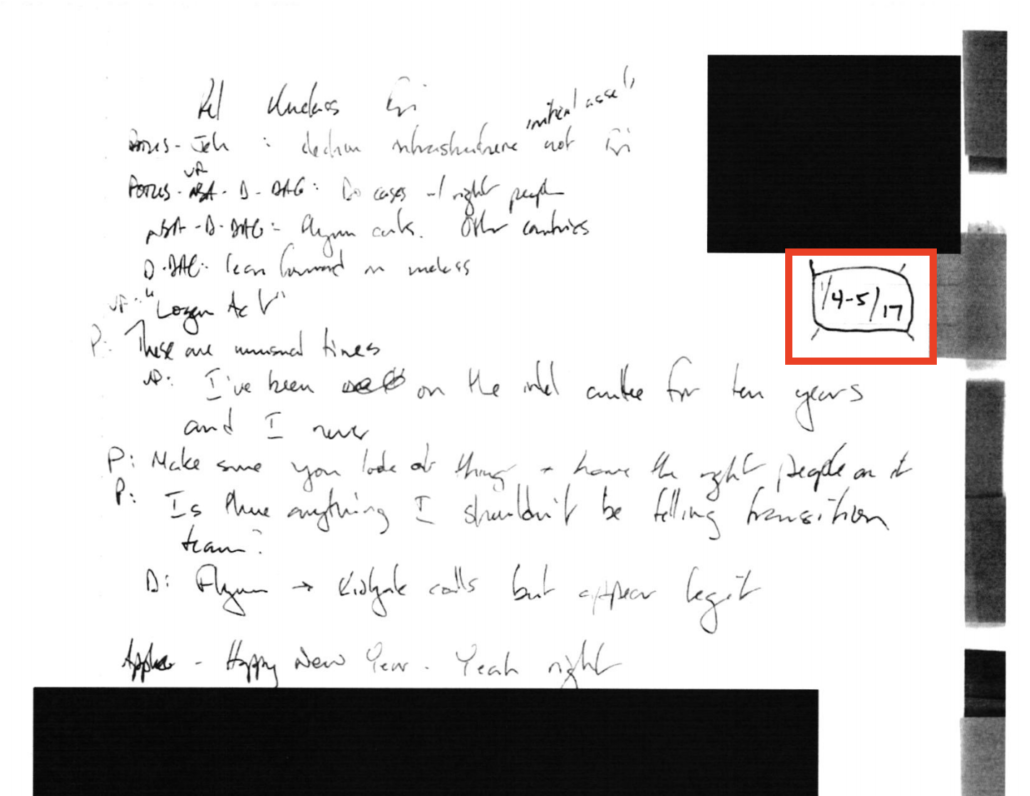 initial assets
POTUS-Jeh : election infrastructure not
VP
POTUS-NSA-D-DAG: cases - right people
NSA-D-DAG= Flynn cuts. Other countries
D-DAG: lean forward on unclass
VP: "Logan Act"
P: These are unusual times
VP: I've been on the intel cmtee for ten years
and I never
P: Make sure you look at things + have the right people on it
P: Is there anything I shouldn't be telling transition
team?
D: Flynn → Kislyak calls but appear legit
- Happy New Year. Yeah right
1/4-5/17